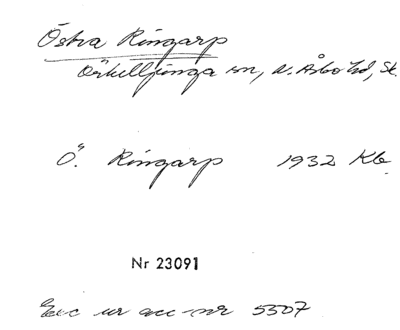 Östra Ringarp
Örkelljunga sn, N. Åsbo hd, Sk.
Ö. Ringarp 1932 Kb
Nr 23091
Exc ur acc-nr 5507